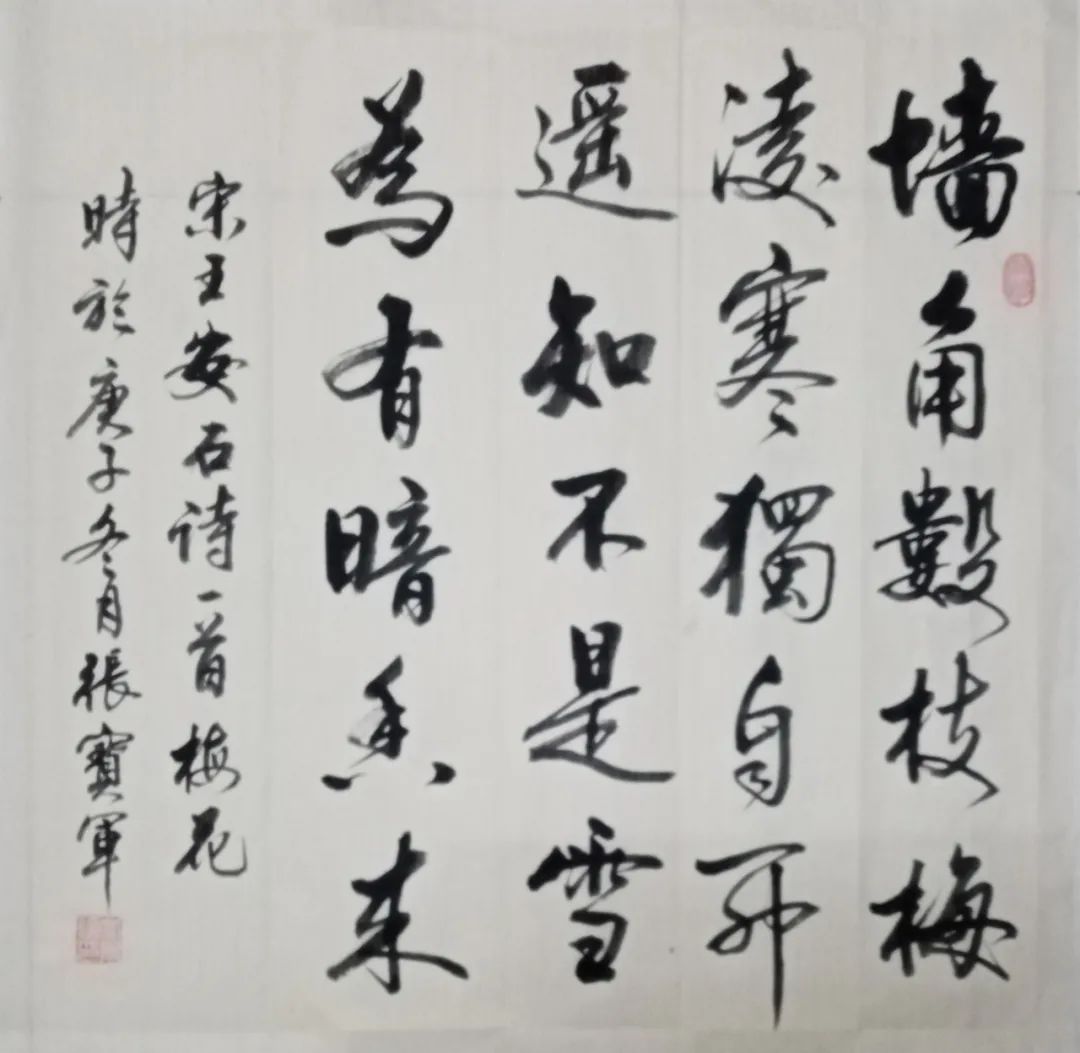 墙角數枝梅
凌寒獨自開
遥知不是雪
為有暗香来
宋王安石诗一首梅花
時於庚子冬月張寶軍